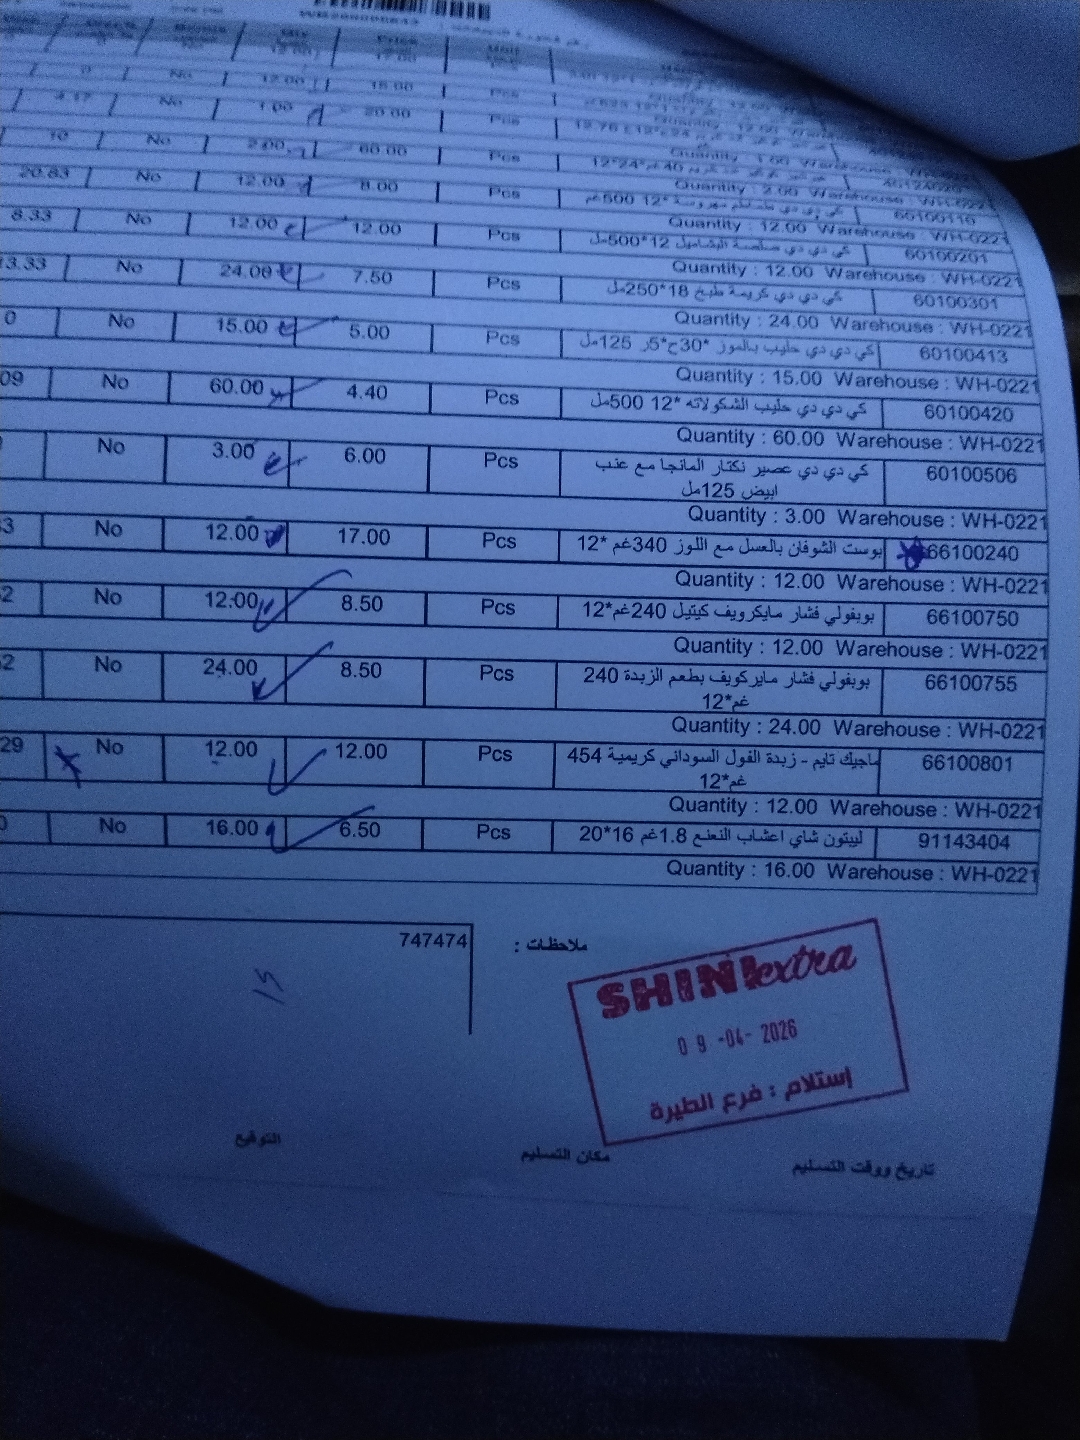 Price
12.00 17.00
0 No 12.00 15.00 Pcs
4.17 No 1.00 20.00 Pcs
Quantity : 1.00 Warehouse
10 No 2.00 60.00 Pcs
Quantity : 2.00 Warehouse : WH-0221
20.83 No 12.00 8.00 Pcs 500غم 12* 60100116
Quantity : 12.00 Warehouse : WH-0221
8.33 No 12.00 12.00 Pcs كي دي دي صلصة البشاميل 12*500مل 60100201
Quantity : 12.00 Warehouse : WH-0221
3.33 No 24.00 7.50 Pcs كي دي دي كريمة طبخ 18*250مل 60100301
Quantity : 24.00 Warehouse : WH-0221
0 No 15.00 5.00 Pcs كي دي دي حليب بالموز *30ح*5ر 125مل 60100413
Quantity : 15.00 Warehouse : WH-0221
09 No 60.00 4.40 Pcs كي دي دي حليب الشكولاته *12 500مل 60100420
Quantity : 60.00 Warehouse : WH-0221
No 3.00 6.00 Pcs كي دي دي عصير نكتار المانجا مع عنب 60100506
ابيض 125مل
Quantity : 3.00 Warehouse : WH-0221
3 No 12.00 17.00 Pcs بوست الشوفان بالعسل مع اللوز 340غم *12 66100240
Quantity : 12.00 Warehouse : WH-0221
2 No 12.00 8.50 Pcs بوبفولي فشار مايكرويف كيتيل 240غم*12 66100750
Quantity : 12.00 Warehouse : WH-0221
52 No 24.00 8.50 Pcs بوبفولي فشار مايركويف بطعم الزبدة 240 66100755
غم*12
Quantity : 24.00 Warehouse : WH-0221
29 No 12.00 12.00 Pcs ماجيك تايم - زبدة الفول السوداني كريمية 454 66100801
غم*12
Quantity : 12.00 Warehouse : WH-0221
0 No 16.00 6.50 Pcs ليبتون شاي اعشاب النعنع 1.8غم 16*20 91143404
Quantity : 16.00 Warehouse : WH-0221
ملاحظات : 747474
SHINI extra
09 -04- 2026
إستلام : فرع الطيرة
تاريخ ووقت التسليم مكان التسليم التوقيع